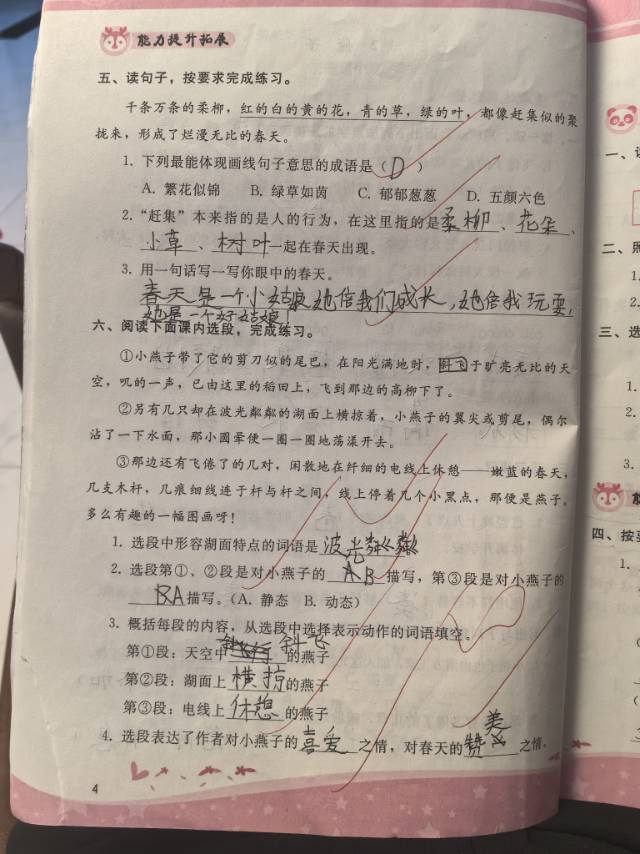 能力提升拓展
五、读句子，按要求完成练习。
千条万条的柔柳，红的白的黄的花，青的草，绿的叶，都像赶集似的聚
拢来，形成了烂漫无比的春天。
1. 下列最能体现画线句子意思的成语是（ D ）
A. 繁花似锦 B. 绿草如茵 C. 郁郁葱葱 D. 五颜六色
2.“赶集”本来指的是人的行为，在这里指的是柔柳、花朵、
小草、树叶一起在春天出现。
3. 用一句话写一写你眼中的春天。
春天是一个小姑娘她倍我们成长，她倍我玩耍，
她是一个好姑娘！
六、阅读下面课内选段，完成练习。
①小燕子带了它的剪刀似的尾巴，在阳光满地时，斜飞于旷亮无比的天
空，叽的一声，已由这里的稻田上，飞到那边的高柳下了。
②另有几只却在波光粼粼的湖面上横掠着，小燕子的翼尖或剪尾，偶尔
沾了一下水面，那小圆晕便一圈一圈地荡漾开去。
③那边还有飞倦了的几对，闲散地在纤细的电线上休憩——嫩蓝的春天，
几支木杆，几痕细线连于杆与杆之间，线上停着几个小黑点，那便是燕子。
多么有趣的一幅图画呀！
1. 选段中形容湖面特点的词语是波光粼粼
2. 选段第①、②段是对小燕子的 B 描写，第③段是对小燕子的
A 描写。（A. 静态 B. 动态）
3. 概括每段的内容，从选段中选择表示动作的词语填空。
第①段：天空中斜飞的燕子
第②段：湖面上横掠的燕子
第③段：电线上休憩的燕子
4. 选段表达了作者对小燕子的喜爱之情，对春天的赞美之情。
4
一、
二、
1.
2.
三、选
1.
2.
3.
四、按
1.